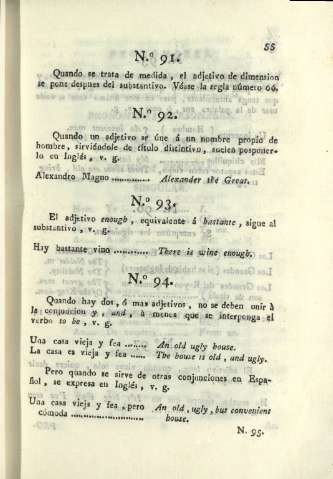 55
N.º 91.
Quando se trata de medida, el adjetivo de dimension
se pone despues del substantivo. Véase la regla número 66.
N.º 92.
Quando un adjetivo se úne á un nombre propio de
hombre, sirviéndole de título distintivo, suelen posponer-
lo en Inglés, v. g.
Alexandro Magno ............. Alexander the Great.
N.º 93.
El adjetivo enough, equivalente á bastante, sigue al
substantivo, v. g.
Hay bastante vino ............ There is wine enough.
N.º 94.
Quando hay dos, ó mas adjetivos, no se deben unir à
la conjuncion y, and, à menos que se interponga el
verbo to be, v. g.
Una casa vieja y fea ........ An old ugly house.
La casa es vieja y fea ..... The house is old, and ugly.
Pero quando se sirve de otras conjunciones en Espa-
ñol, se expresa en Inglés, v. g.
Una casa vieja y fea, pero An old, ugly, but convenient
cómoda .................... house.
N. 95.